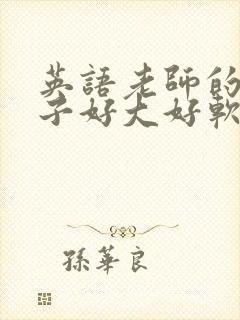 英語老師的
子好大好軟
孫華良